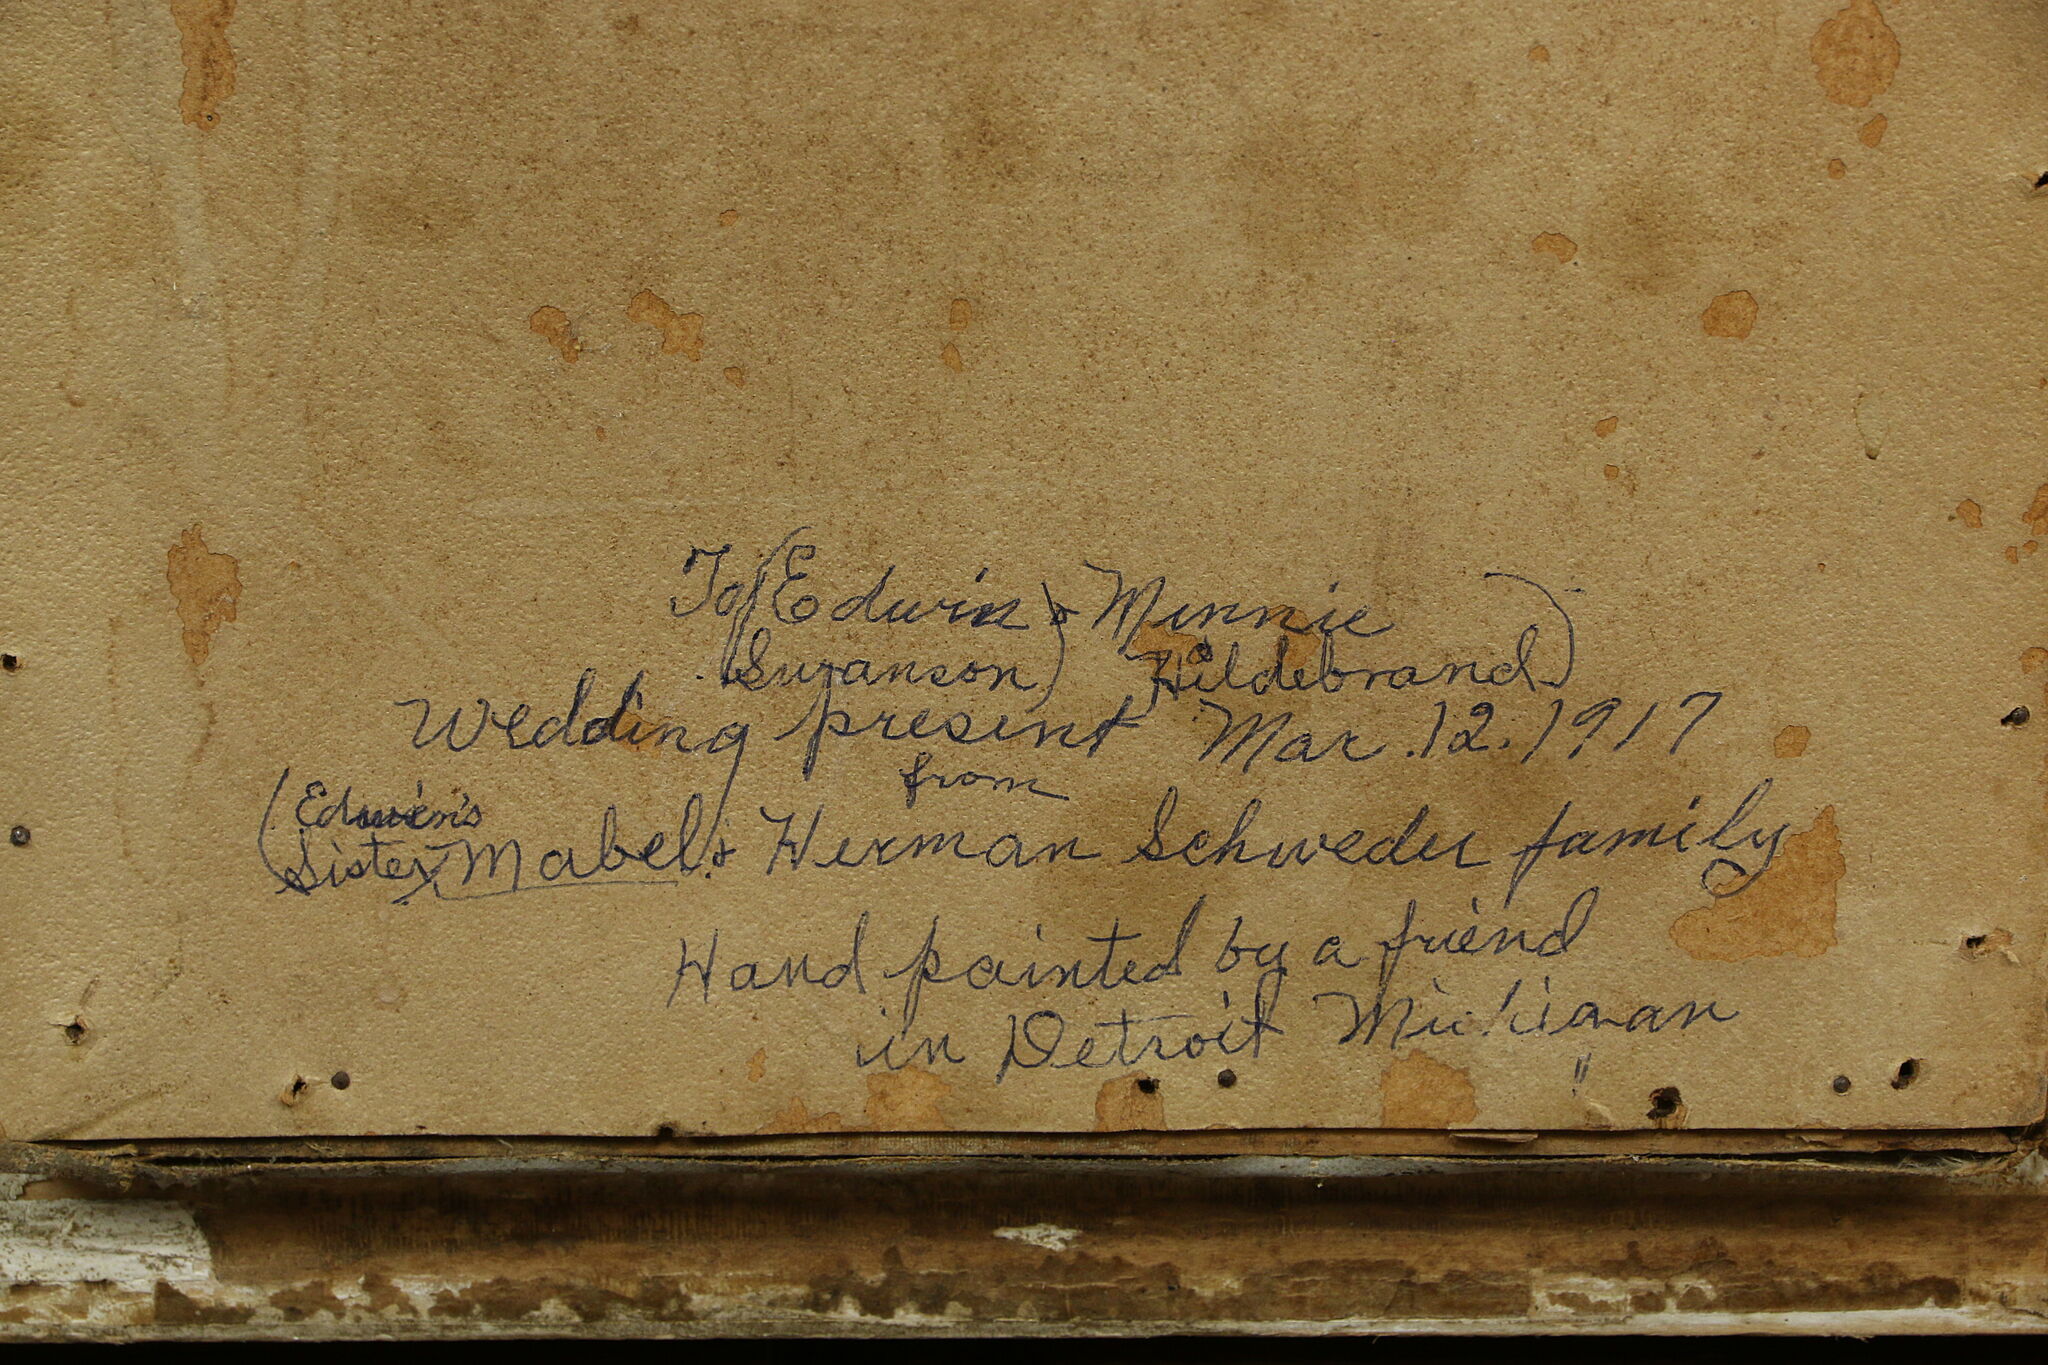 To (Edwin & Minnie
(Swanson) Hildebrand)
Wedding present Mar. 12. 1917
from
(Edwin's
Sister) Mabel & Herman Schweder family
Hand painted by a friend
in Detroit Michigan
"